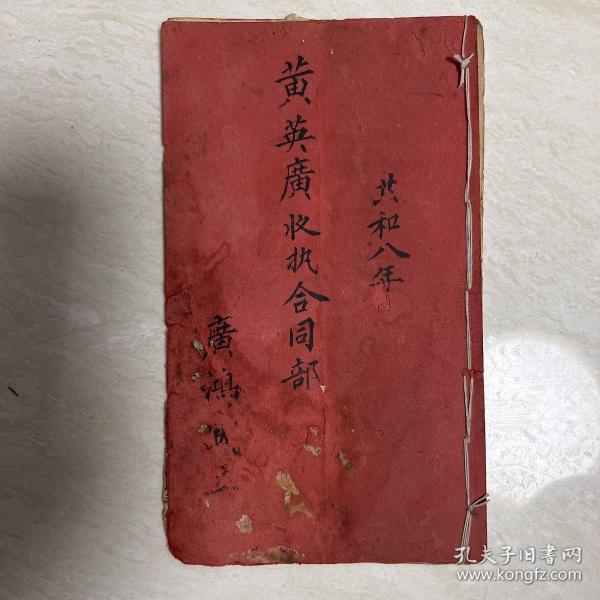 共和八年
黄英廣收执合同部
廣鴻
孔夫子旧书网
www.kongfz.com